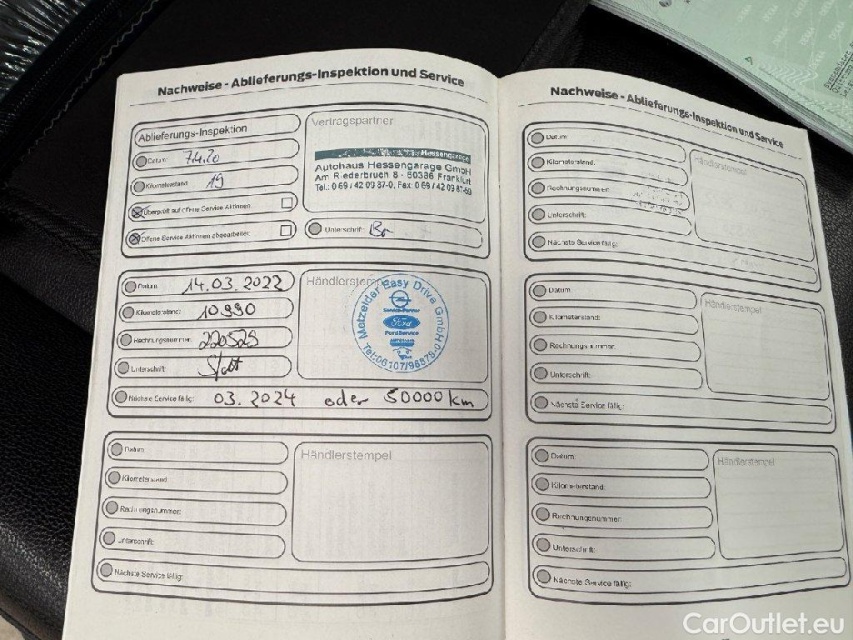 Nachweise - Ablieferungs-Inspektion und Service
Ablieferungs-Inspektion
Datum: 7.4.20
Kilometerstand: 19
Überprüft auf offene Service Aktionen
Offene Service Aktionen abgearbeitet
Vertragspartner
Hessengarage
Autohaus Hessengarage GmbH
Am Riederbruch 8 - 60386 Frankfurt
Tel.: 0 69 / 42 09 87-0, Fax: 0 69 / 42 09 87-60
Unterschrift:
Datum: 14.03.2022
Kilometerstand: 10.990
Rechnungsnummer: 220529
Unterschrift:
Nächste Service fällig: 03.2024 oder 50000 km
Händlerstempel
Metzelder Easy Drive GmbH
Ford
Tel: 06107/96879-0
Datum:
Kilometerstand:
Rechnungsnummer:
Unterschrift:
Nächste Service fällig:
Händlerstempel
Nachweise - Ablieferungs-Inspektion und Service
Datum:
Kilometerstand:
Rechnungsnummer:
Unterschrift:
Nächste Service fällig:
Händlerstempel
Datum:
Kilometerstand:
Rechnungsnummer:
Unterschrift:
Nächste Service fällig:
Händlerstempel
Datum:
Kilometerstand:
Rechnungsnummer:
Unterschrift:
Nächste Service fällig:
Händlerstempel
CarOutlet.eu